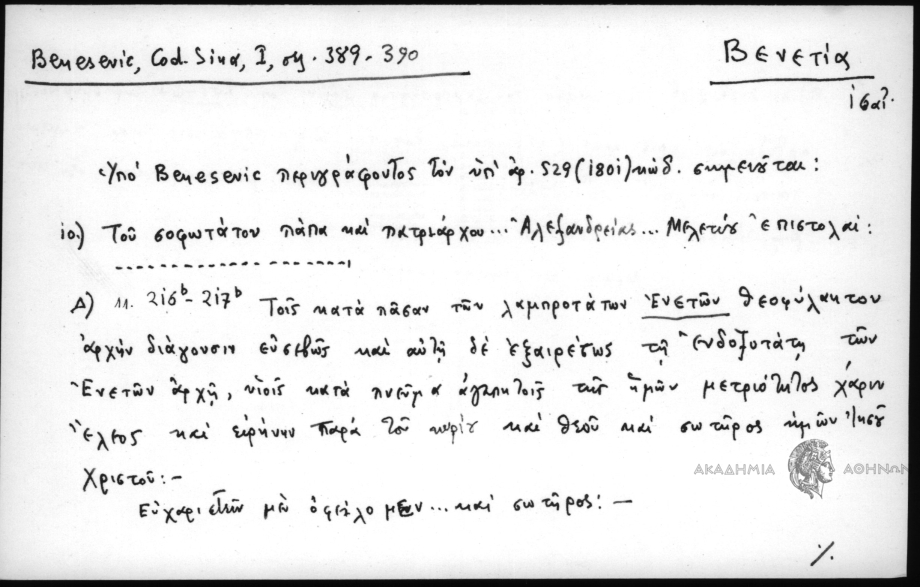 Benesevic, Cod. Sina, I, σελ. 389-390
Βενετία
ις΄ αἰ.
Ὑπό Benesevic περιγράφοντος τόν ὑπ' ἀρ. 529 (1801) κώδ. σημειοῦται:
10.) Τοῦ σοφωτάτου πάπα καί πατριάρχου... Ἀλεξανδρείας... Μελετίου ἐπιστολαί:
Δ) 11. 216b-217b Τοῖς κατά πᾶσαν τῶν λαμπροτάτων Ἐνετῶν θεοφύλακτον
ἀρχήν διάγουσιν εὐσεβῶς καί αὐτῇ δέ ἐξαιρέτως τῇ ἐνδοξοτάτῃ τῶν
Ἐνετῶν ἀρχῇ, υἱοῖς κατά πνεῦμα ἀγαπητοῖς τῆς ἡμῶν μετριότητος χάριν
ἔλεος καί εἰρήνην παρά τοῦ κυρίου καί θεοῦ καί σωτῆρος ἡμῶν Ἰησοῦ
Χριστοῦ:-
Εὐχαριστεῖν μέν ὀφείλομεν... καί σωτῆρος:-
ΑΚΑΔΗΜΙΑ ΑΘΗΝΩΝ
./.